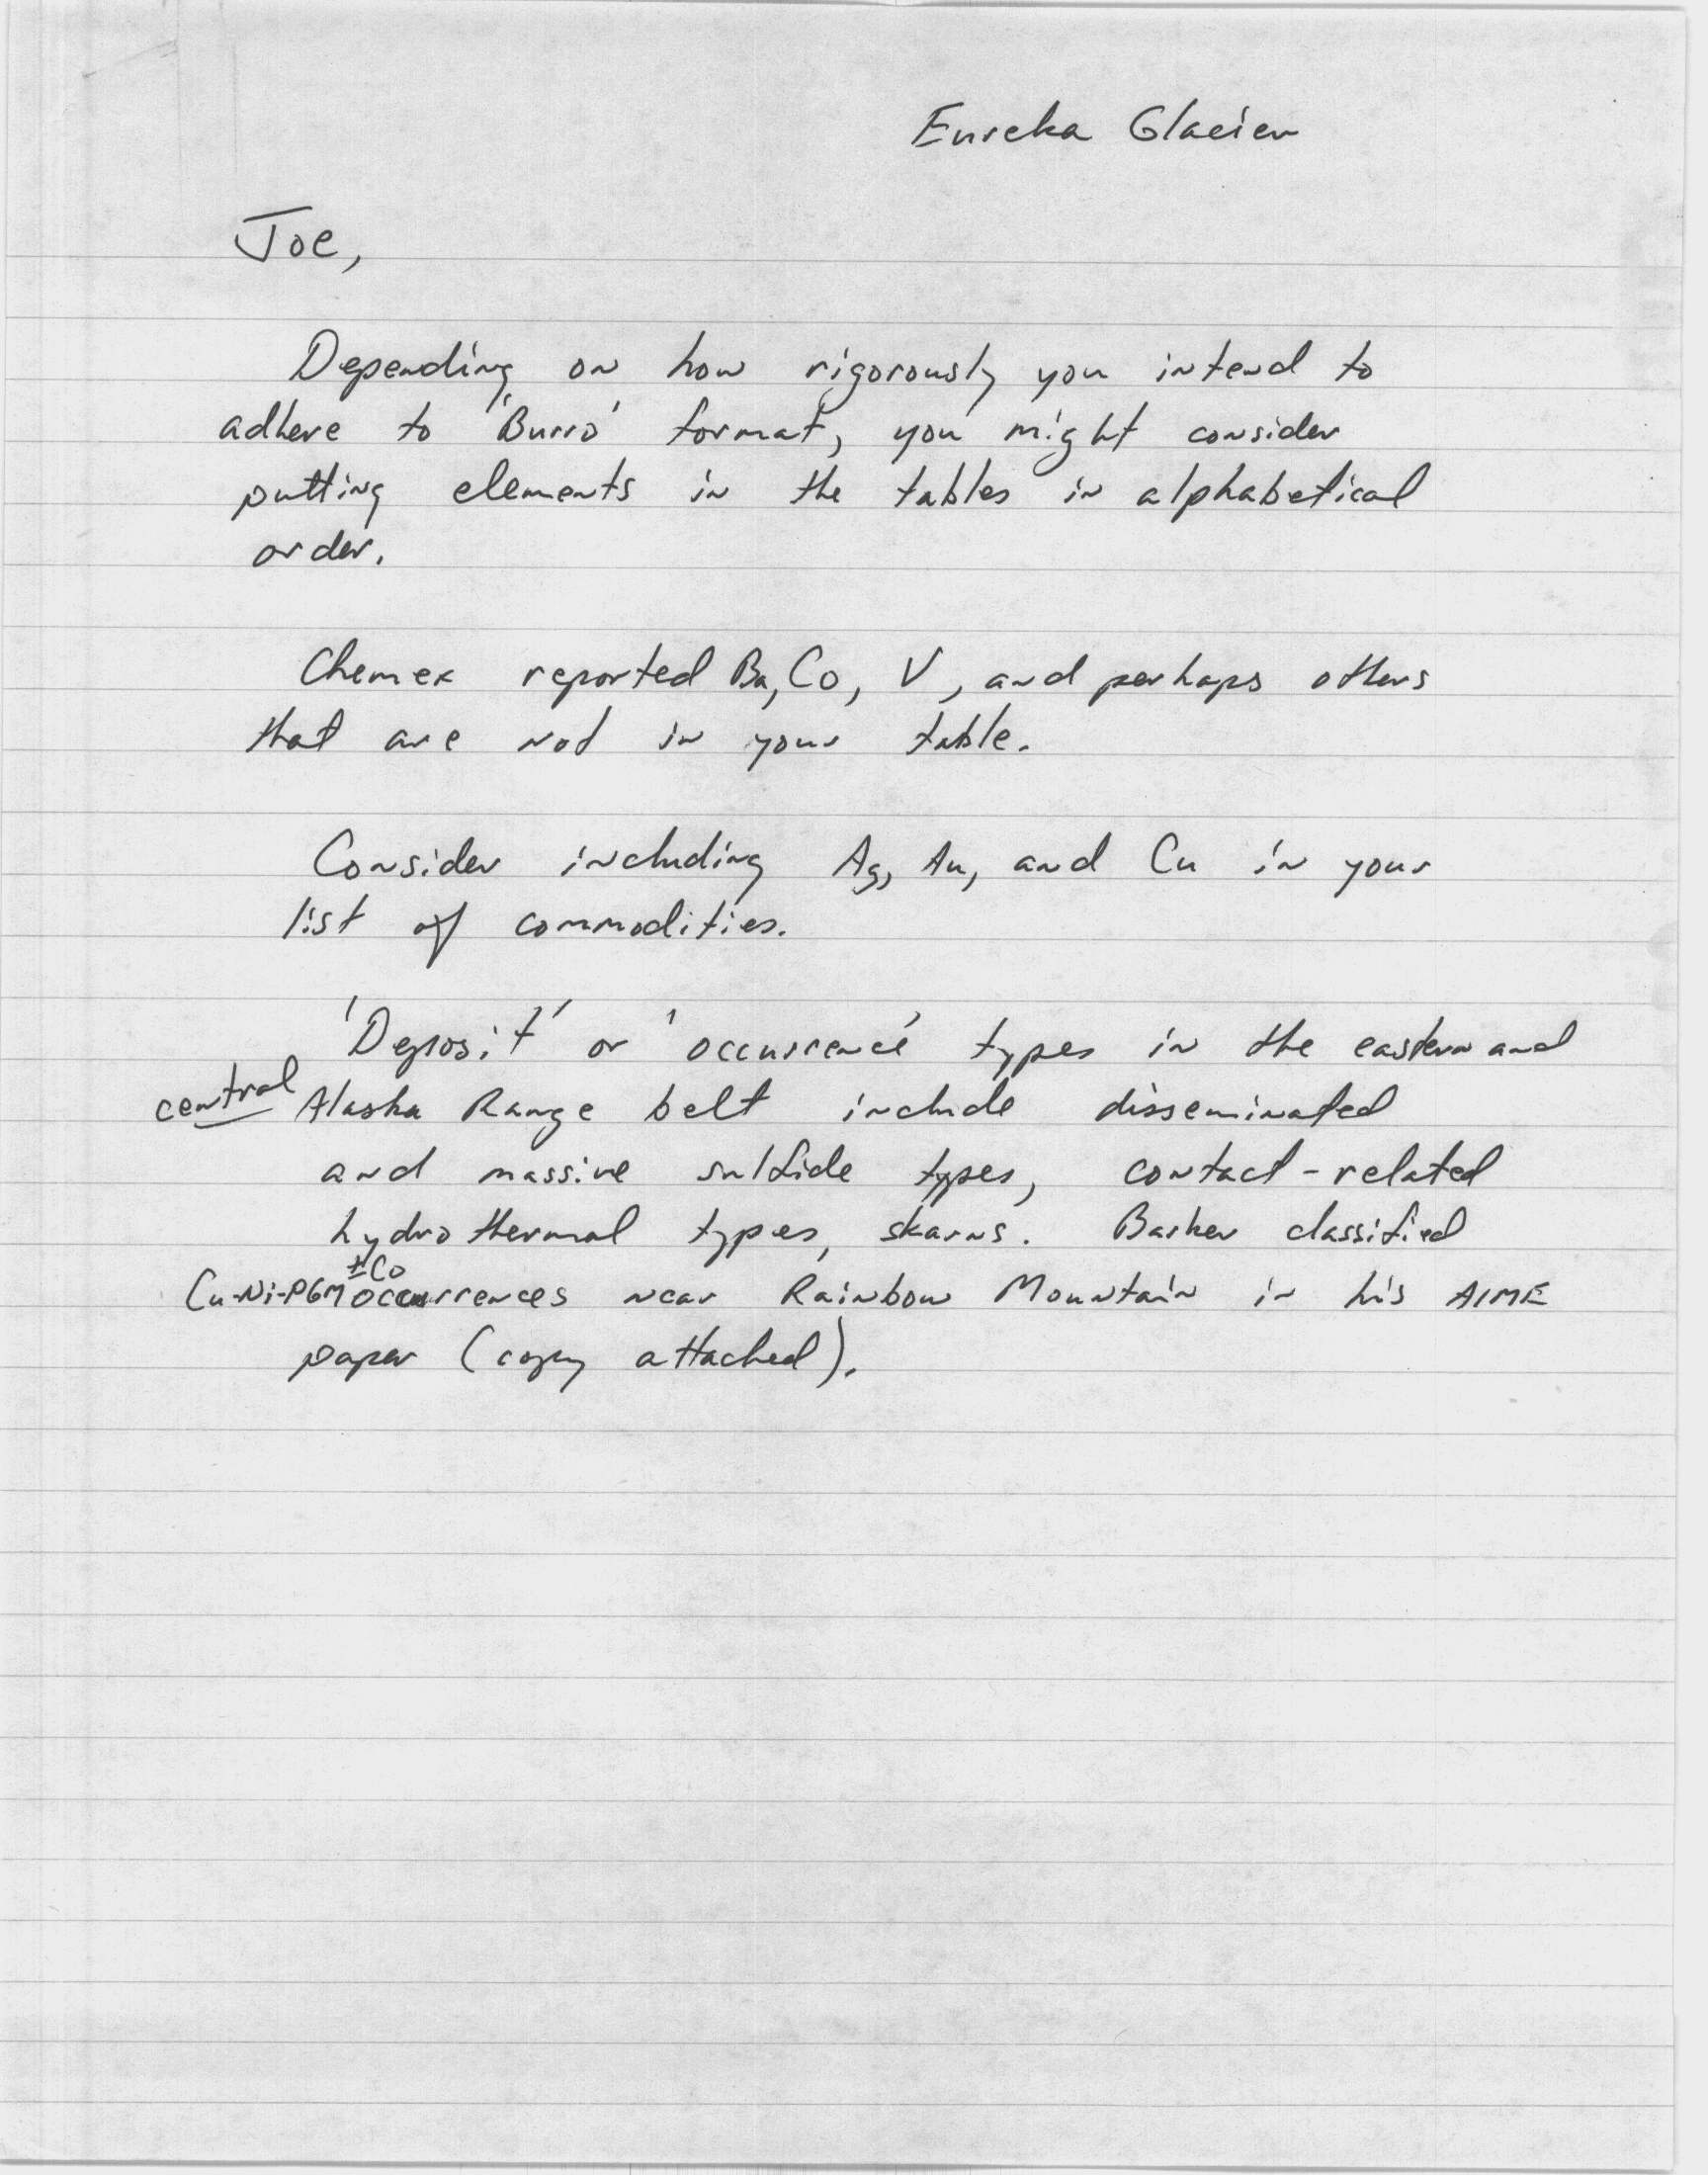 Eureka Glacier
Joe,
Depending on how rigorously you intend to
adhere to 'Burro' format, you might consider
putting elements in the tables in alphabetical
order.
Chemex reported Ba, Co, V, and perhaps others
that are not in your table.
Consider including Ag, Au, and Cu in your
list of commodities.
'Deposit' or 'occurrence' types in the eastern and
central Alaska Range belt include disseminated
and massive sulfide types, contact-related
hydrothermal types, skarns. Barker classified
Cu-Ni-PGM±Co occurrences near Rainbow Mountain in his AIME
paper (copy attached).